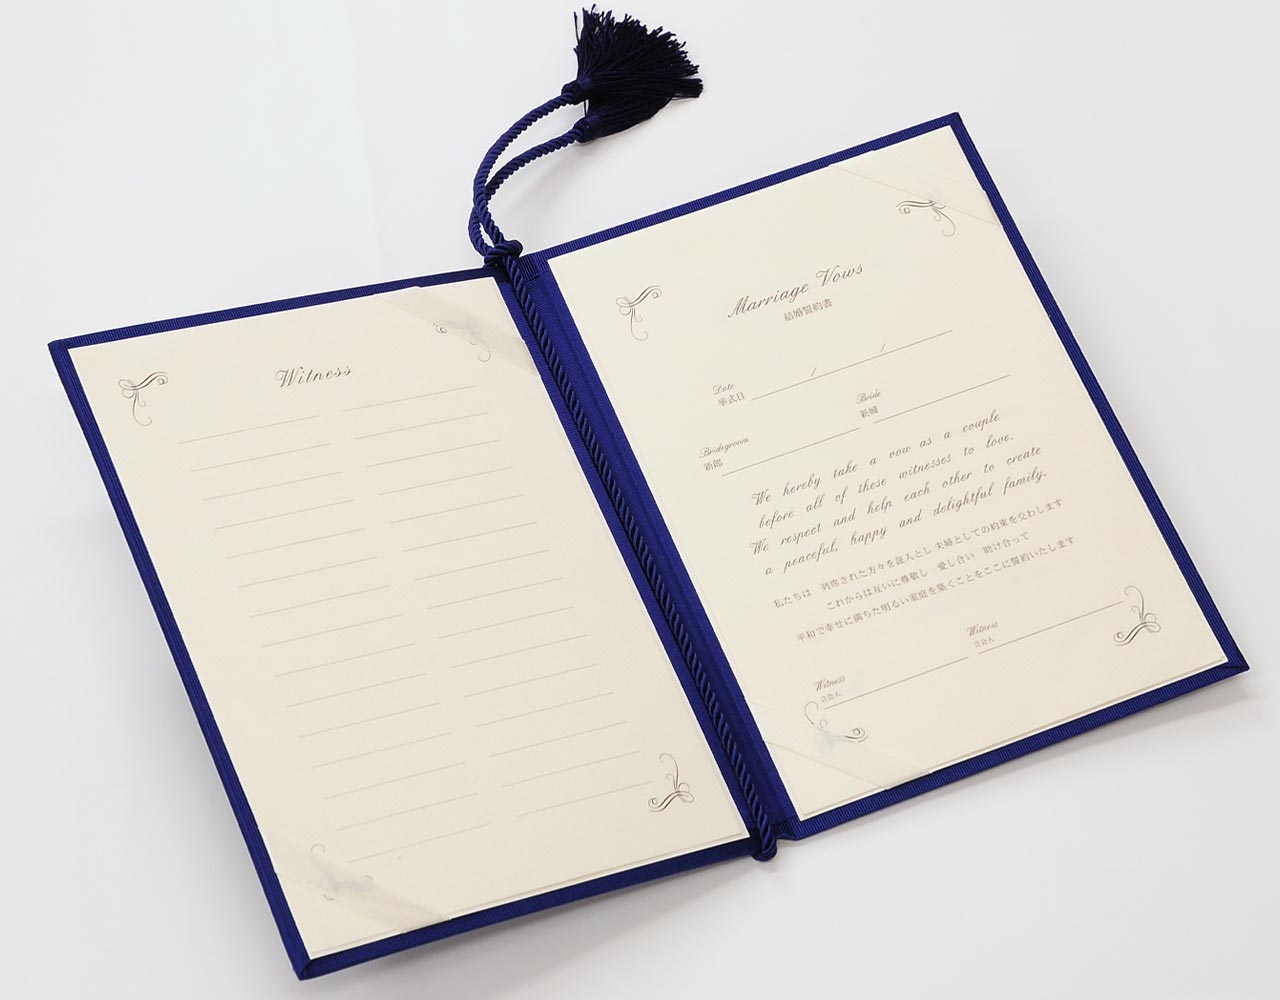 Witness
Marriage Vows
結婚誓約書
Date / /
挙式日
Bridegroom
新郎
Bride
新婦
We hereby take a vow as a couple
before all of these witnesses to love.
We respect and help each other to create
a peaceful, happy and delightful family.
私たちは 列席された方々を証人とし 夫婦としての約束を交わします
これからは互いに尊敬し 愛し合い 助け合って
平和で幸せに満ちた明るい家庭を築くことをここに誓約いたします
Witness
立会人
Witness
立会人